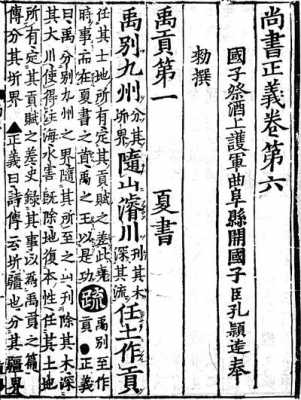 尚書正義卷第六
國子祭酒上護軍曲阜縣開國子臣孔穎達奉
勑撰
禹貢第一 夏書
禹別九州分其圻界隨山濬川刊其木深其流任土作貢
任其土地所有定其貢賦之差此堯時事而在夏書之首禹之王以是功疏禹別至作貢●正義
曰禹分別九州之界隨其所至之山刊除其木深
其大川使得注海水害既除地復本性任其土地
所有定其貢賦之差史錄其事以為禹貢之篇
傳分其圻界▲正義曰詩傳云圻疆也分其疆界